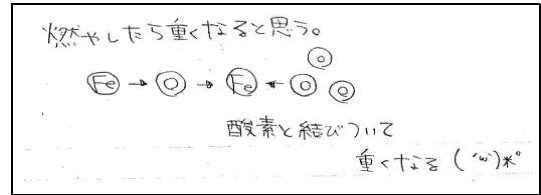 燃やしたら重くなると思う。
O
Fe → O → Fe ← O O
酸素と結びついて
重くなる ( ´ω`)*°